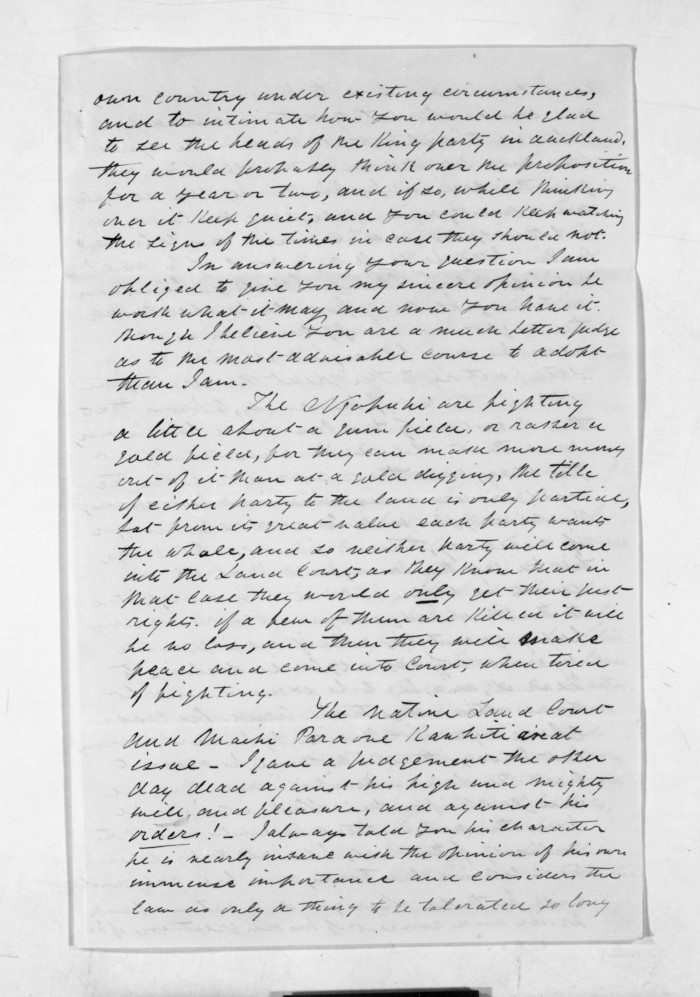 own country under existing circumstances,
and to intimate how you would be glad
to see the heads of the King party in auckland.
they would probably think over the proposition
for a year or two, and if so, while thinking
over it keep quiet, and you could keep watching
the signs of the times in case they should not.
In answering your question I am
obliged to give you my sincere opinion be
worth what it may and now you have it.
though I believe you are a much better judge
as to the most advisable course to adopt
than I am.
The Ngapuhi are fighting
a little about a gum field, or rather a
gold field, for they can make more money
out of it than at a gold digging, the title
of either party to the land is only partial,
but from its great value each party wants
the whole, and so neither party will come
into the Land Court, as they know that in
that case they would only get their just
rights. if a few of them are killed it will
be no loss, and then they will make
peace and come into Court, when tired
of fighting.
The Native Land Court
and Maihi Paraone Kawhiti is at
issue - I gave a judgement the other
day dead against his high and mighty
will, and pleasure, and against his
orders! - I always told you his character
he is nearly insane with the opinion of his own
immense importance and considers the
law as only a thing to be tolerated so long